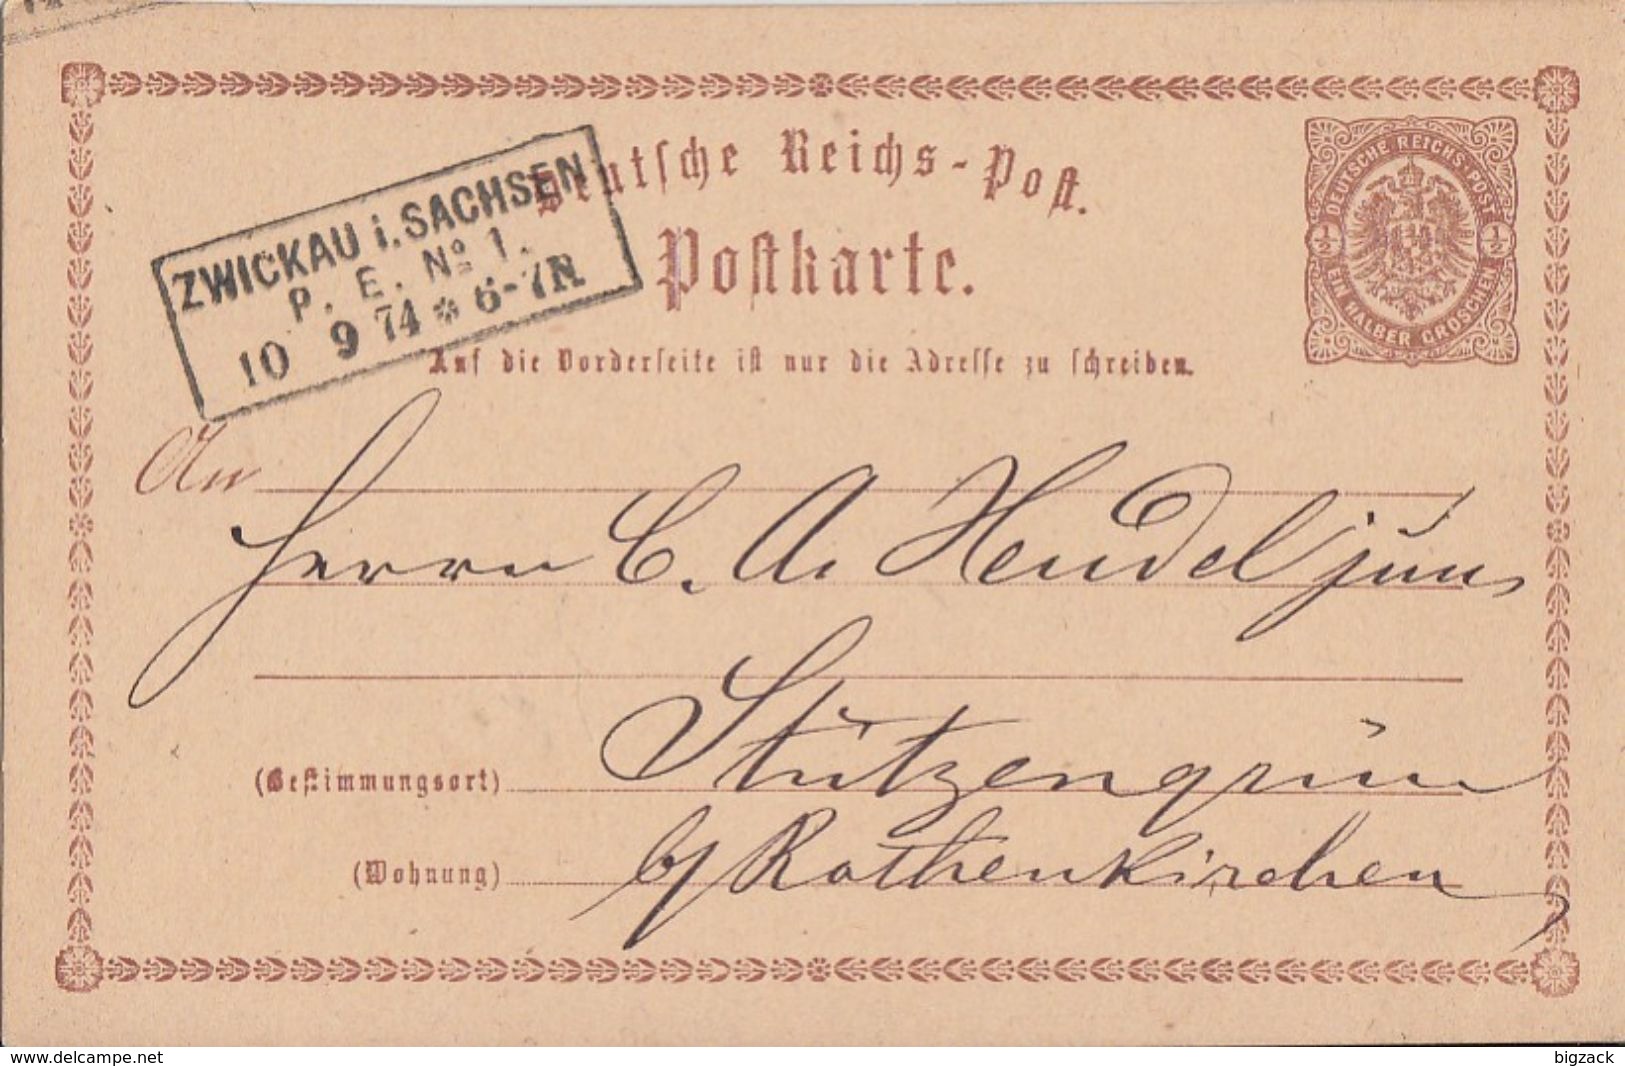 Deutsche Reichs-Post.
Postkarte.
DEUTSCHE REICHS-POST
½ ½
EIN HALBER GROSCHEN
ZWICKAU i. SACHSEN
P. E. No 1.
10 9 74 * 6-7N
Auf die Vorderseite ist nur die Adresse zu schreiben.
An
Herrn C. A. Hendel jun.
(Bestimmungsort) Stützengrün
(Wohnung) b/ Rothenkirchen
www.delcampe.net
bigzack